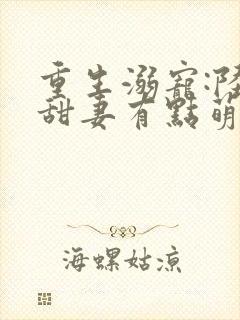 重生溺寵:
甜妻有點萌
海螺姑涼